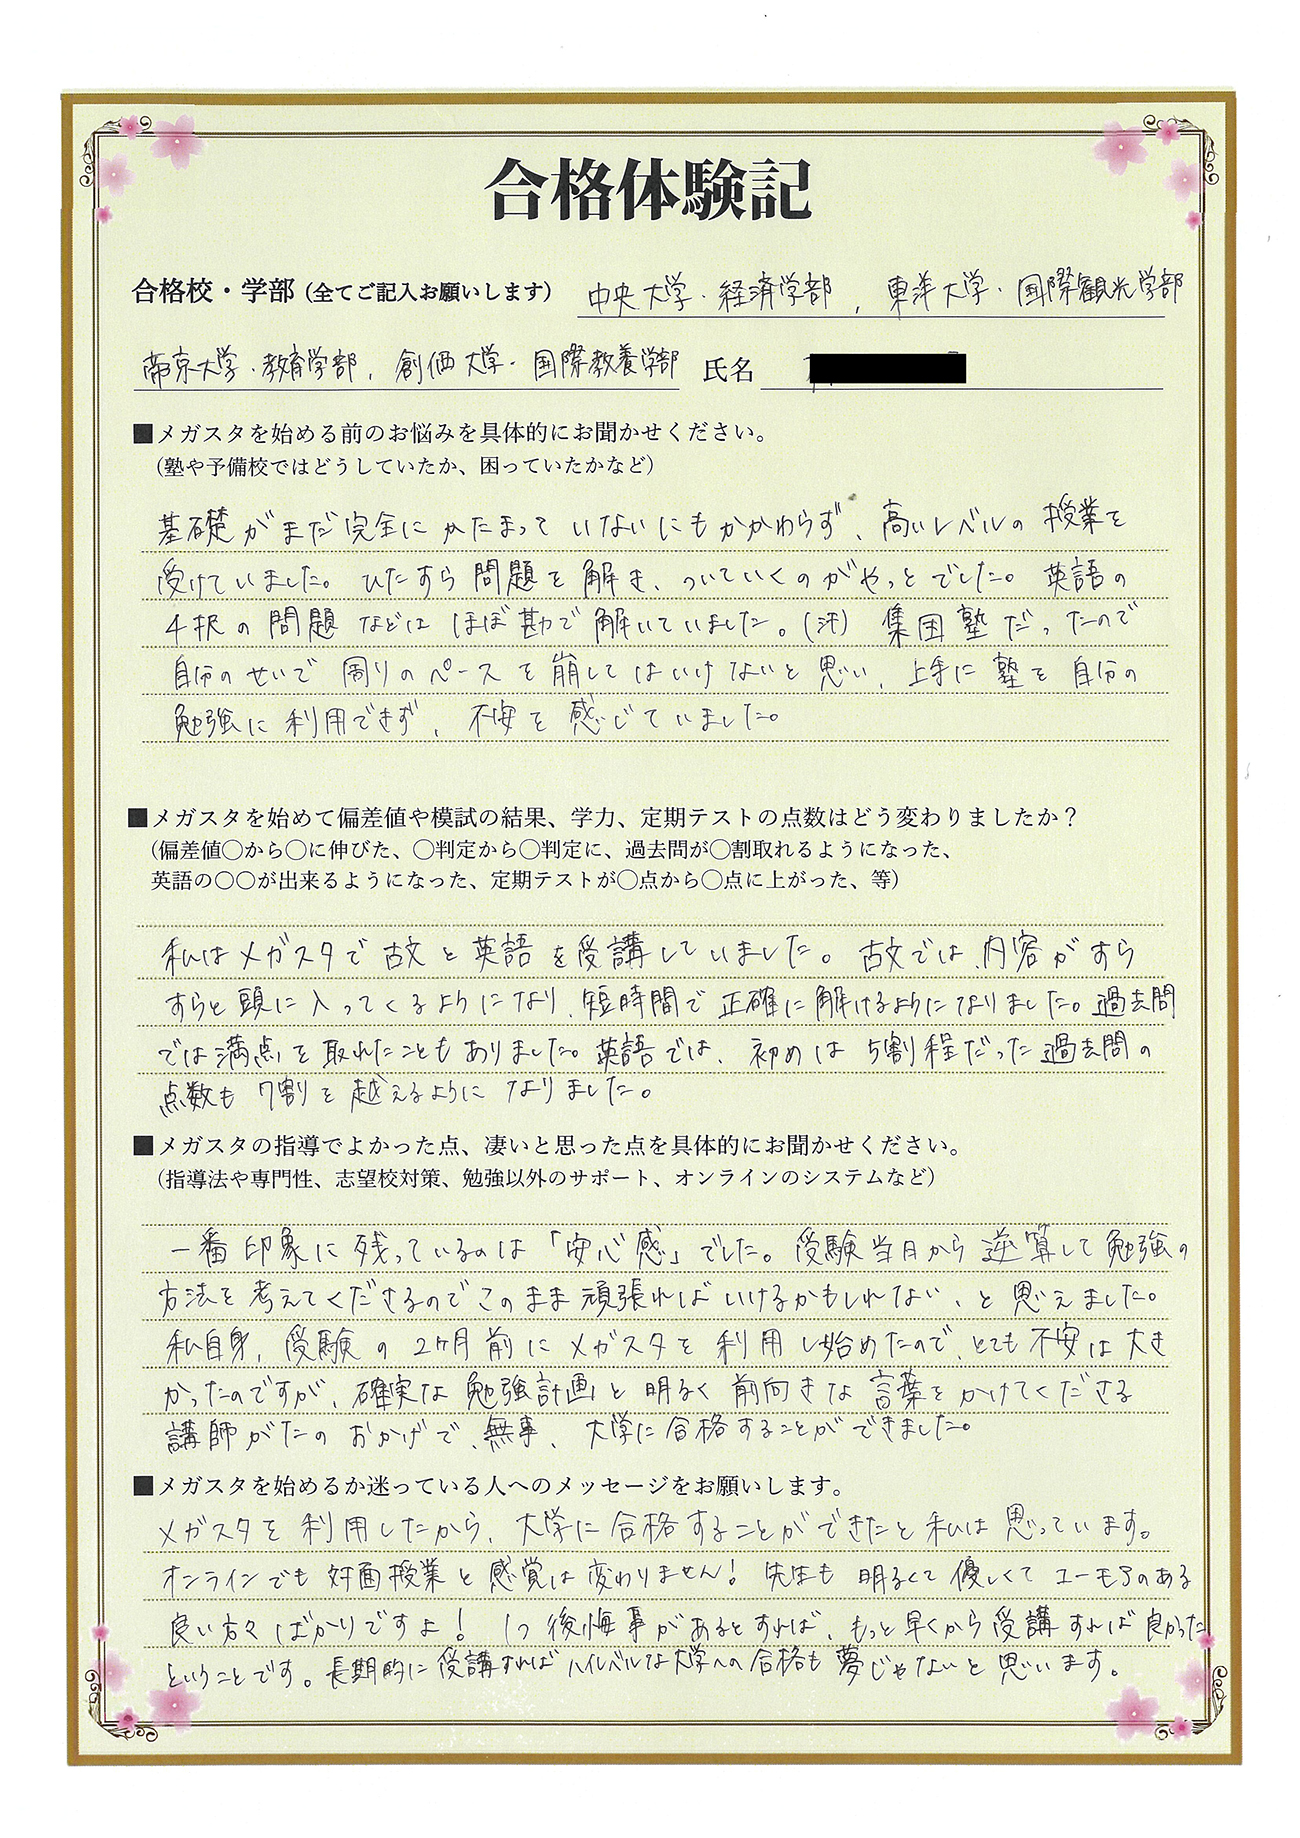 合格体験記
合格校・学部（全てご記入お願いします） 中央大学・経済学部, 東洋大学・国際観光学部
帝京大学・教育学部, 創価大学・国際教養学部 氏名
■メガスタを始める前のお悩みを具体的にお聞かせください。
（塾や予備校ではどうしていたか、困っていたかなど）
基礎がまだ完全にかたまっていないにもかかわらず、高いレベルの授業を
受けていました。ひたすら問題を解き、ついていくのがやっとでした。英語の
4択の問題などはほぼ勘で解いていました。(汗) 集団塾だったので
自分のせいで周りのペースを崩してはいけないと思い、上手に塾を自分の
勉強に利用できず、不安を感じていました。
■メガスタを始めて偏差値や模試の結果、学力、定期テストの点数はどう変わりましたか？
（偏差値〇から〇に伸びた、〇判定から〇判定に、過去問が〇割取れるようになった、
英語の〇〇が出来るようになった、定期テストが〇点から〇点に上がった、等）
私はメガスタで古文と英語を受講していました。古文では、内容がすら
すらと頭に入ってくるようになり、短時間で正確に解けるようになりました。過去問
では満点を取れたこともありました。英語では、初めは5割程だった過去問の
点数も7割を越えるようになりました。
■メガスタの指導でよかった点、凄いと思った点を具体的にお聞かせください。
（指導法や専門性、志望校対策、勉強以外のサポート、オンラインのシステムなど）
一番印象に残っているのは「安心感」でした。受験当日から逆算して勉強の
方法を考えてくださるのでこのまま頑張ればいけるかもしれない、と思えました。
私自身、受験の2ヶ月前にメガスタを利用し始めたので、とても不安は大き
かったのですが、確実な勉強計画と明るく前向きな言葉をかけてくださる
講師がたのおかげで、無事、大学に合格することができました。
■メガスタを始めるか迷っている人へのメッセージをお願いします。
メガスタを利用したから、大学に合格することができたと私は思っています。
オンラインでも対面授業と感覚は変わりません！先生も明るくて優しくてユーモアのある
良い方々ばかりですよ！1つ後悔事があるとすれば、もっと早くから受講すれば良かった
ということです。長期的に受講すればハイレベルな大学への合格も夢じゃないと思います。